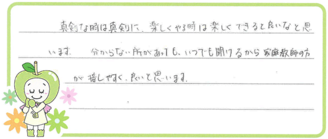 真剣な時は真剣に、楽しくやる時は楽しくできると良いなと思
います。分からない所があっても、いつでも聞けるから家庭教師の方
が接しやすく、良いと思います。